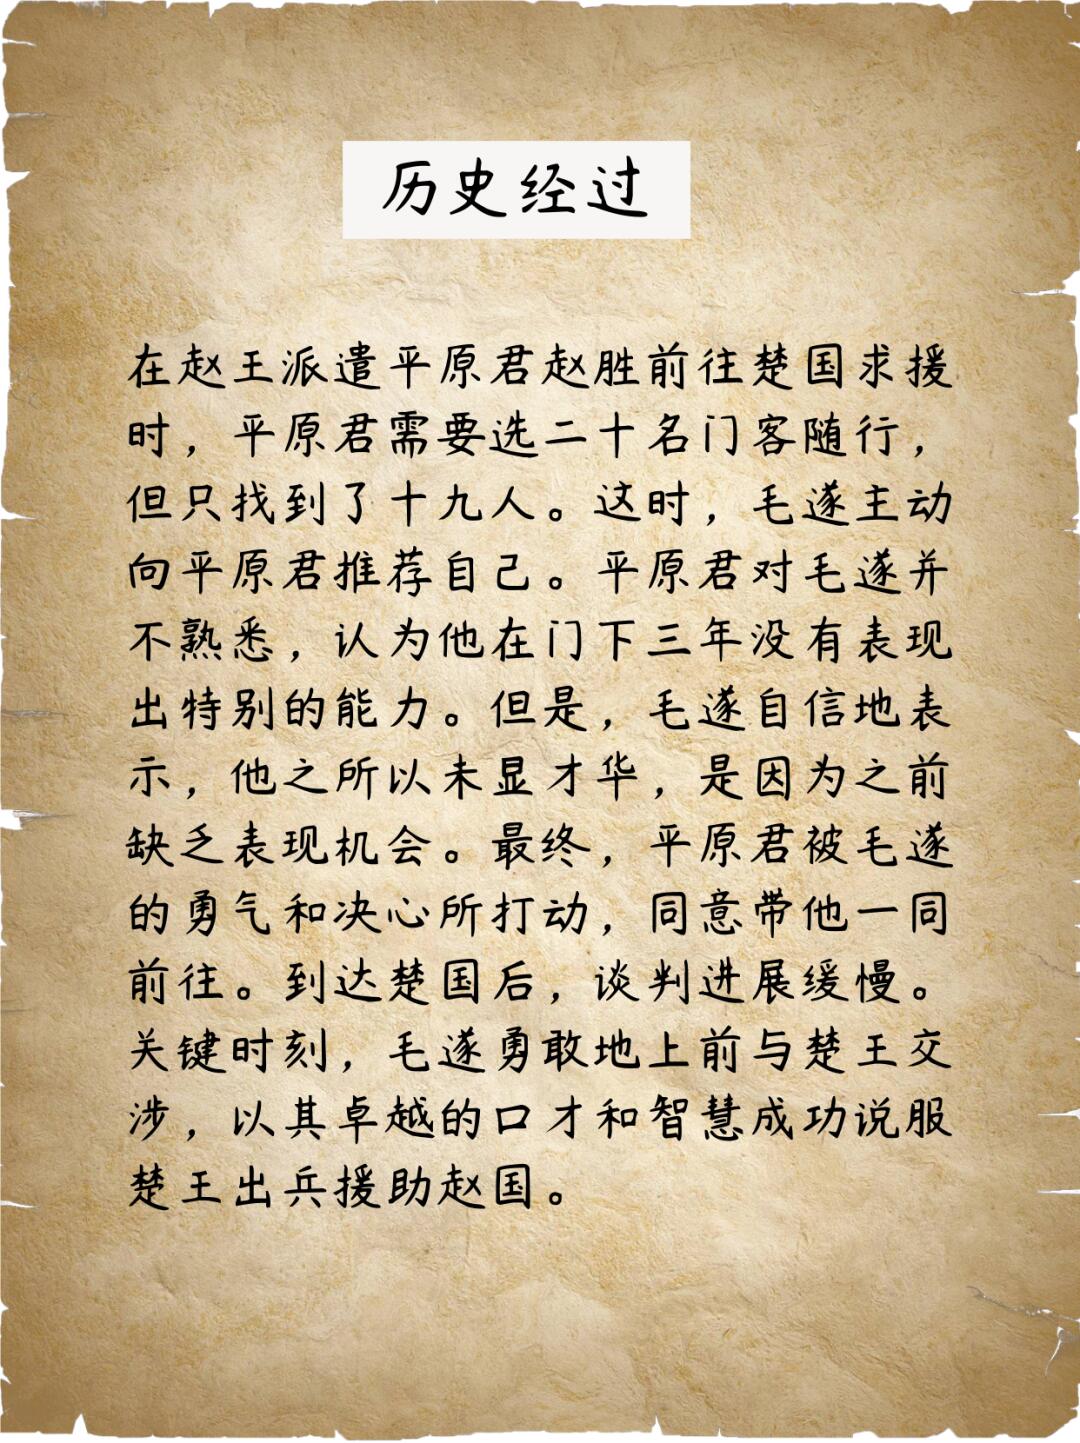 历史经过
在赵王派遣平原君赵胜前往楚国求援
时，平原君需要选二十名门客随行，
但只找到了十九人。这时，毛遂主动
向平原君推荐自己。平原君对毛遂并
不熟悉，认为他在门下三年没有表现
出特别的能力。但是，毛遂自信地表
示，他之所以未显才华，是因为之前
缺乏表现机会。最终，平原君被毛遂
的勇气和决心所打动，同意带他一同
前往。到达楚国后，谈判进展缓慢。
关键时刻，毛遂勇敢地上前与楚王交
涉，以其卓越的口才和智慧成功说服
楚王出兵援助赵国。